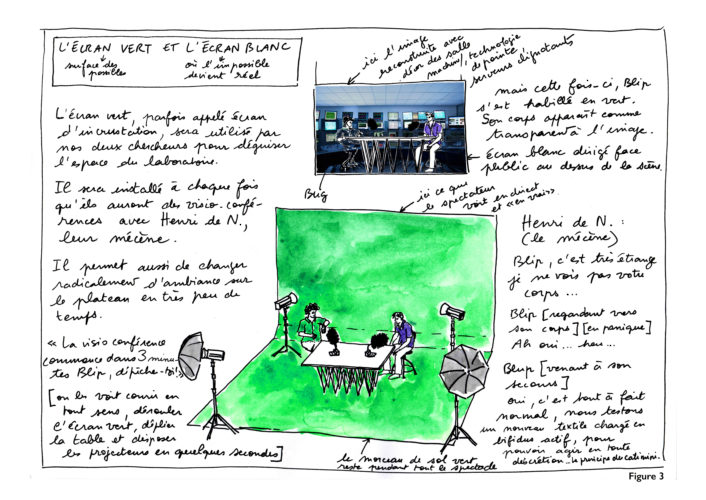 L'ÉCRAN VERT ET L'ÉCRAN BLANC
surface des
possibles
où l'impossible
devient réel
ici l'image
reconstruite avec
décor des salle
machin/technologie
de pointe
serveurs clignotants
L'écran vert, parfois appelé écran
d'incrustation, sera utilisé par
nos deux chercheurs pour déguiser
l'espace du laboratoire.
Il sera installé à chaque fois
qu'ils auront des visio-confé-
rences avec Henri de N.,
leur mécène.
Il permet aussi de changer
radicalement d'ambiance sur
le plateau en très peu de
temps.
« La visio conférence
commence dans 3 minu-
tes Blip, dépêche-toi!»
[on les voit courir en
tout sens, dérouler
l'écran vert, déplier
la table et disposer
les projecteurs en quelques secondes]
Bug
ici ce que
le spectateur
voit en direct
et «en vrai»
mais cette fois-ci, Blip
s'est habillé en vert.
Son corps apparaît comme
transparent à l'image.
écran blanc dirigé face
public au dessus de la scène.
Henri de N. :
(le mécène)
Blip, c'est très étrange
je ne vois pas votre
corps ...
Blip [regardant vers
son corps] [en panique]
Ah oui ... heu ...
Blup [venant à son
secours]
oui, c'est tout à fait
normal, nous testons
un nouveau textile chargé en
bifidus actif, pour
pouvoir agir en toute
discrétion... le principe du
le morceau de sol vert
reste pendant tout le spectacle
Figure 3